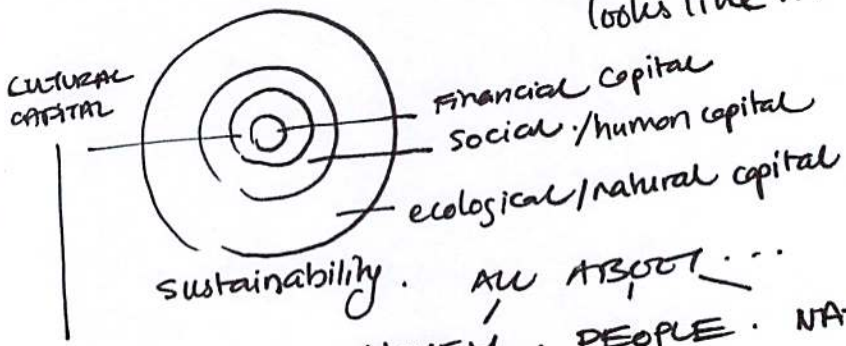 looks like
CULTURAL
CAPITAL
Financial capital
social/human capital
ecological/natural capital
sustainability.
ALL ABOUT...
PEOPLE.